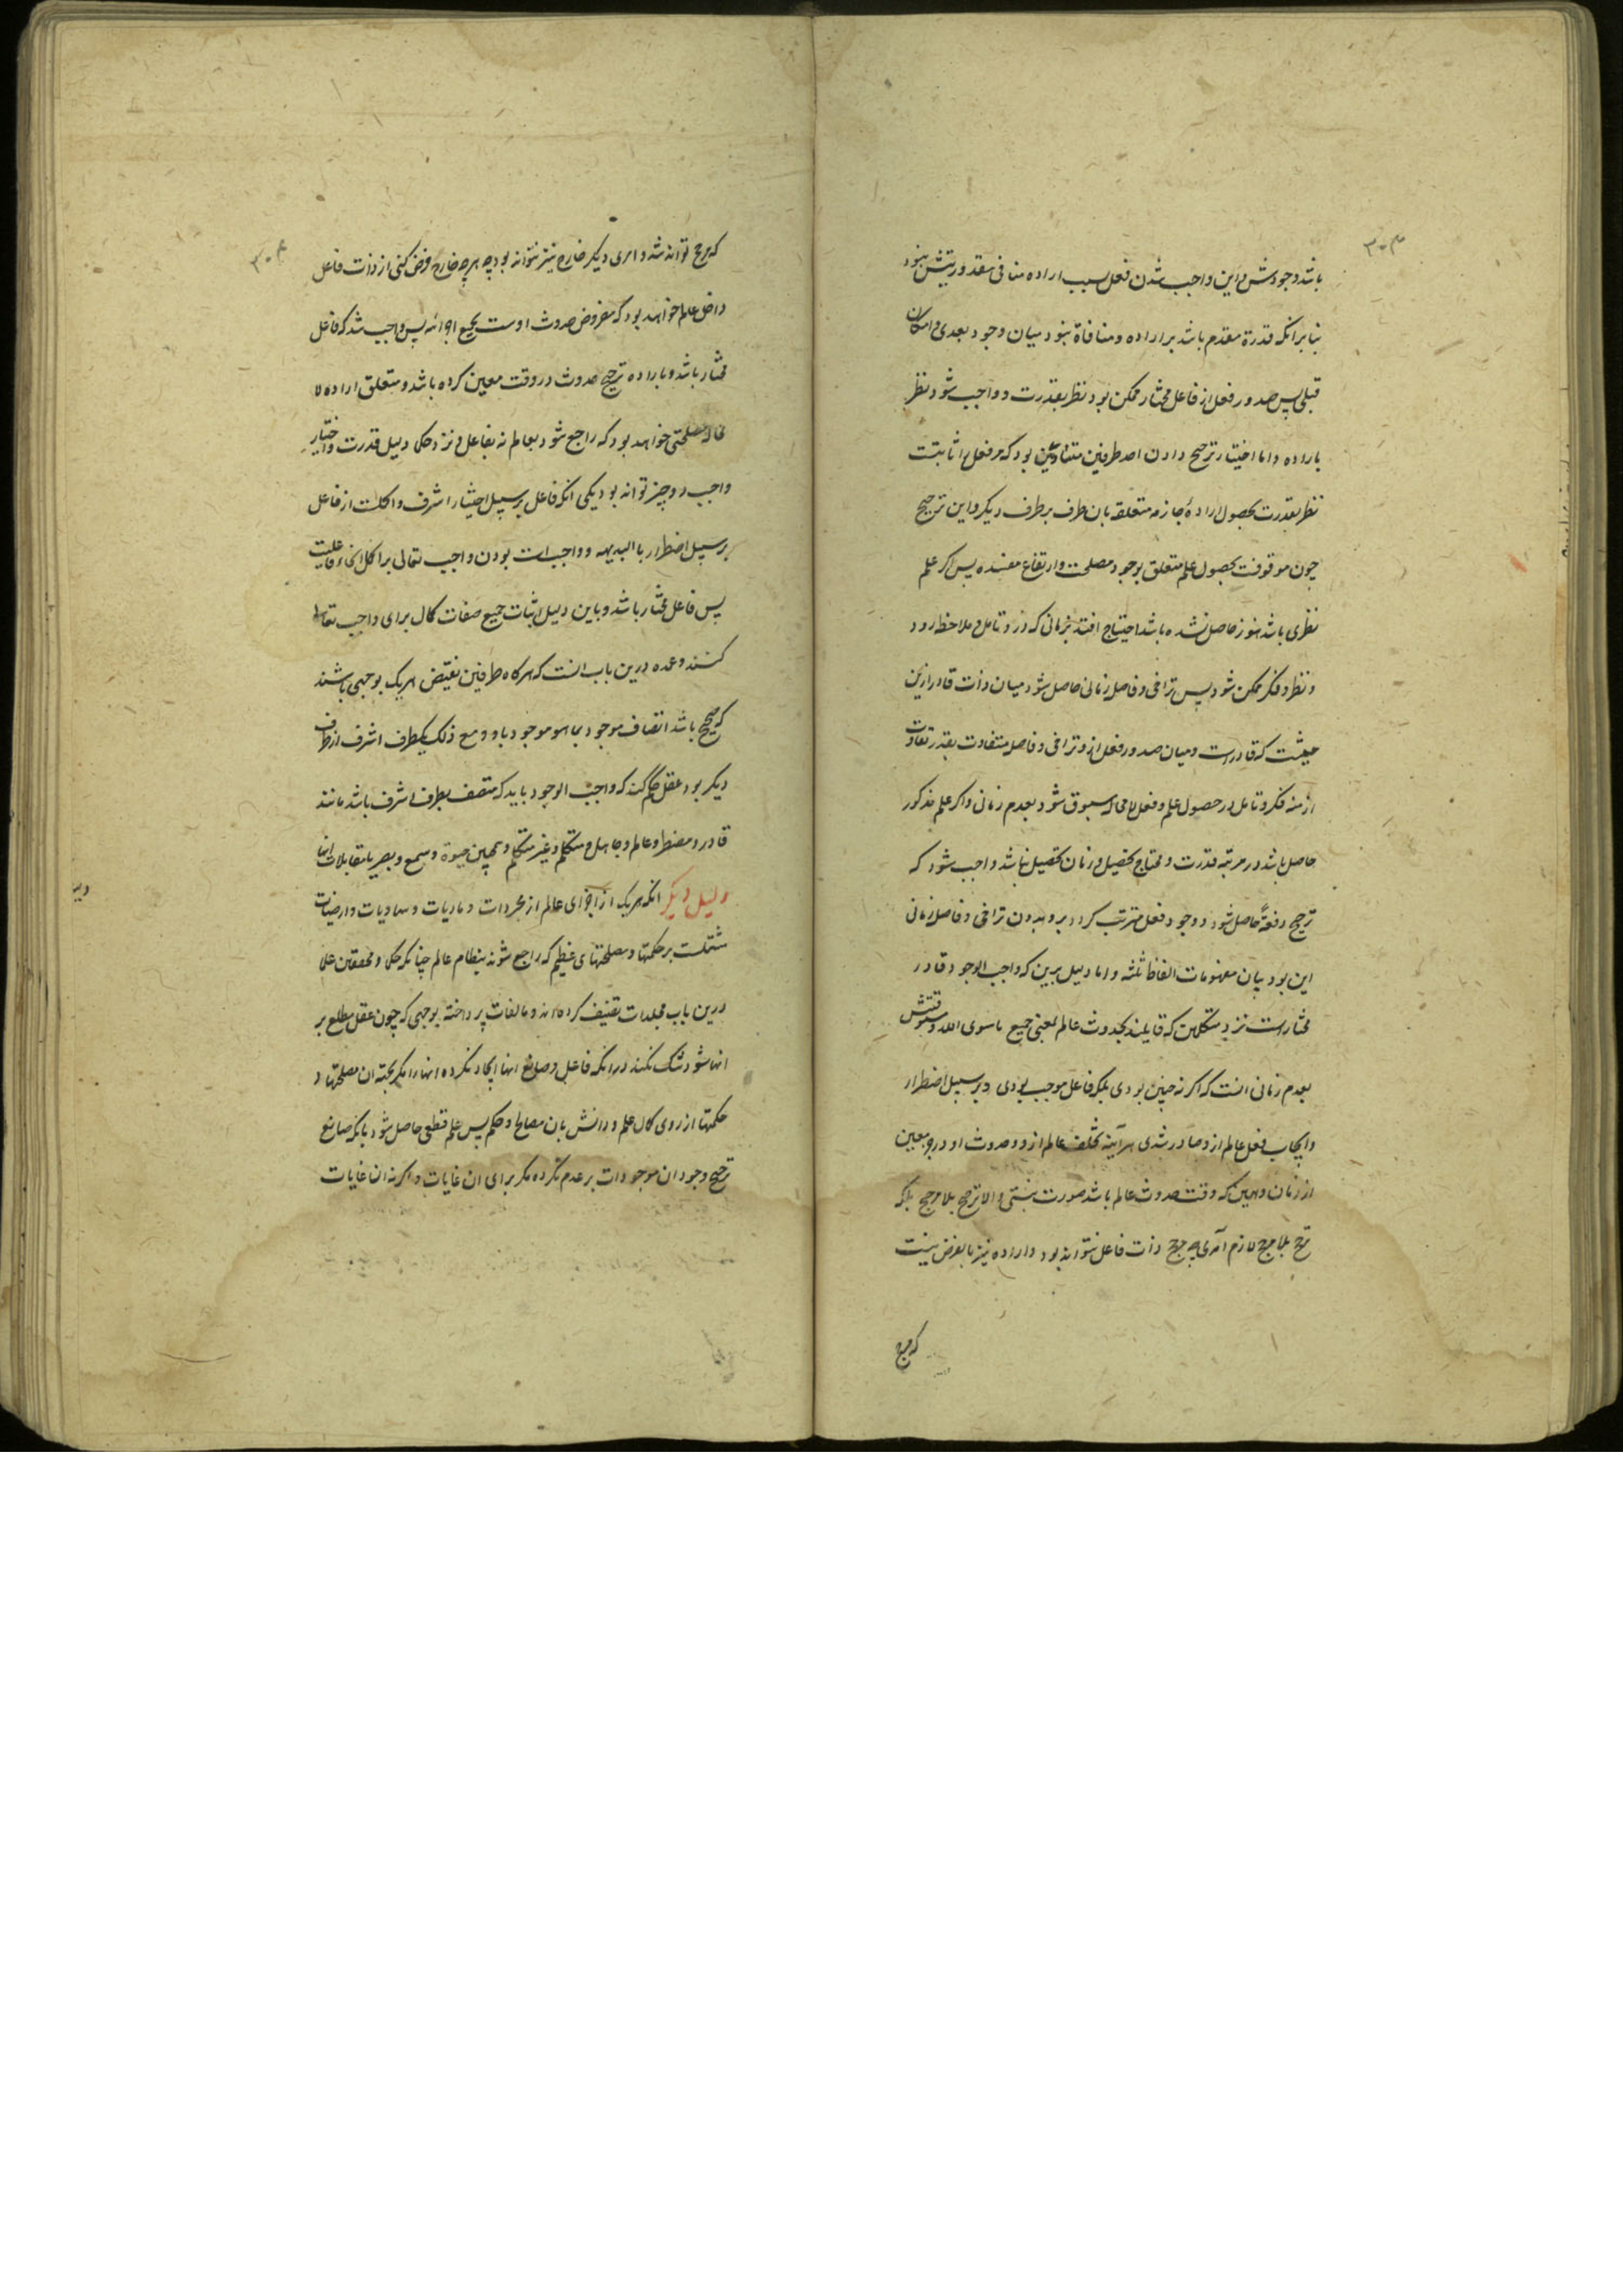 ۳۰۳
باشد وجودش و این واجب شدن فعل بسبب اراده منافی مقدوریتش نبود
بنا برانکه قدرة مقدم باشد بر اراده و منافاة نبود میان وجود بعدی و امکان
قبلی پس صدور فعل از فاعل مختار ممکن بود نظر بقدرت و واجب شود نظر
باراده و اما اختیار ترجیح دادن احد طرفین متساویین بود که مر فعل را ثابتست
نظر بقدرت بحصول ارادهٔ جازمه متعلقه بان طرف بر طرف دیگر و این ترجیح
چون موقوفست بحصول علم متعلق بوجود مصلحت و ارتفاع مفسده پس اکر علم
نظری باشد هنوز حاصل نشده باشد احتیاج افتد بزمانی که درو تامل و ملاحظه رود
و نظر و فکر ممکن شود پس تراخی و فاصل زمانی حاصل شود میان ذات قادر ازین
حیثیت که قادرست و میان صدور فعل ازو تراخی و فاصل متفاوت بقدر تفاوت
ازمنه فکر و تامل در حصول علم و فعل لامحاله مسبوق شود بعدم زمانی و اکر علم مذکور
حاصل باشد در مرتبه قدرت و محتاج بتحصیل و زمان تحصیل نباشد واجب شود که
ترجیح دفعةً حاصل شود و وجود فعل مترتب کردد برو بدون تراخی و فاصل زمانی
این بود بیان مفهومات الفاظ ثلثه و اما دلیل برین که واجب الوجود قادر
مختارست نزد متکلمین که قایلند بحدوث عالم بمعنی جمیع ماسوی الله و مسبوقیتش
بعدم زمانی انست که اکر نه چنین بودی بلکه فاعل موجب بودی و بر سبیل اضطرار
و ایجاب فعل عالم ازو صادر شدی هرآینه تخلف عالم ازو و حدوث او در جزو معین
از زمان و همین که وقت حدوث عالم باشد صورت نبستی و الا ترجیح بلا مرجح بلکه
ترجح بلا مرجح لازم آمدی چه مرجح ذات فاعل نتواند بود و اراده نیز بالفرض نیست
که مرجح
۳۰۴
که مرجح تواند شد و امری دیکر خارج نیز نتواند بود چه هر چه خارج فرض کنی از ذات فاعل
داخل عالم خواهد بود که مفروض حدوث اوست بجمیع اجزائه پس واجب شد که فاعل
مختار باشد و باراده ترجیح حدوث در وقت معین کرده باشد و متعلق اراده لا
محاله مصلحتی خواهد بود که راجع شود بعالم نه بفاعل و نزد حکما دلیل قدرت و اختیار
واجب دو چیز تواند بود یکی انکه فاعل بر سبیل اختیار اشرف و اکملست از فاعل
بر سبیل اضطرار بالبدیهه و واجب است بودن واجب تعالی بر اکمل انحاء فاعلیت
پس فاعل مختار باشد و باین دلیل اثبات جمیع صفات کمال برای واجب تعالی
کنند و عمده درین باب انست که هرکاه طرفین نقیض هر یک بوجهی باشند
که صحیح باشد اتصاف موجود بما هو موجود باو و مع ذلک یکطرف اشرف از طرف
دیکر بود عقل حکم کند که واجب الوجود باید که متصف بطرف اشرف باشد مانند
قادر و مضطر و عالم و جاهل و متکلم و غیر متکلم و همچنین حیوة و سمع و بصر با مقابلات انها
دلیل دیکر انکه هر یک از اجزای عالم از مجردات و مادیات و سماویات و ارضیات
مشتملست بر حکمتها و مصلحتهای عظیم که راجع شوند بنظام عالم چنانکه حکما و محققین علما
درین باب مجلدات تصنیف کرده‌اند و مالفات پرداخته بوجهی که چون عقل مطلع بر
انها شود شک نکند در انکه فاعل و صانع انها ایجاد نکرده انها را مکر بجهة ان مصلحتها و
حکمتها از روی کمال علم و دانش بان مصالح و حکم پس علم قطعی حاصل شود بانکه صانع
ترجیح وجود ان موجودات بر عدم نکرده مکر برای ان غایات و اکر نه ان غایات